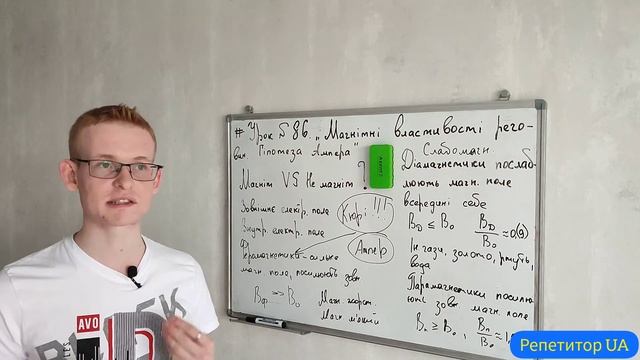 # Урок №86. „Магнітні властивості речо-
вин. Гіпотеза Ампера"
Магніт VS Не магніт ?
Зовнішнє електр. поле
Внутр. електр. поле
Феромагнетики - сильне
магн. поле, посилюють зовн
Bф >> B₀
Магн. жорст.
Магн. м'який
Кюрі !!!
Ампер
Слабомагн.
Діамагнетики послаб-
люють магн. поле
всередині себе
Bд ≤ B₀
Bд/B₀ ≈
Ін. гази, золото, ртуть,
вода
Парамагнетики посилю-
ють зовн магн. поле
Bп ≥ B₀, Bп/B₀ ≈
AVO
Репетитор UA